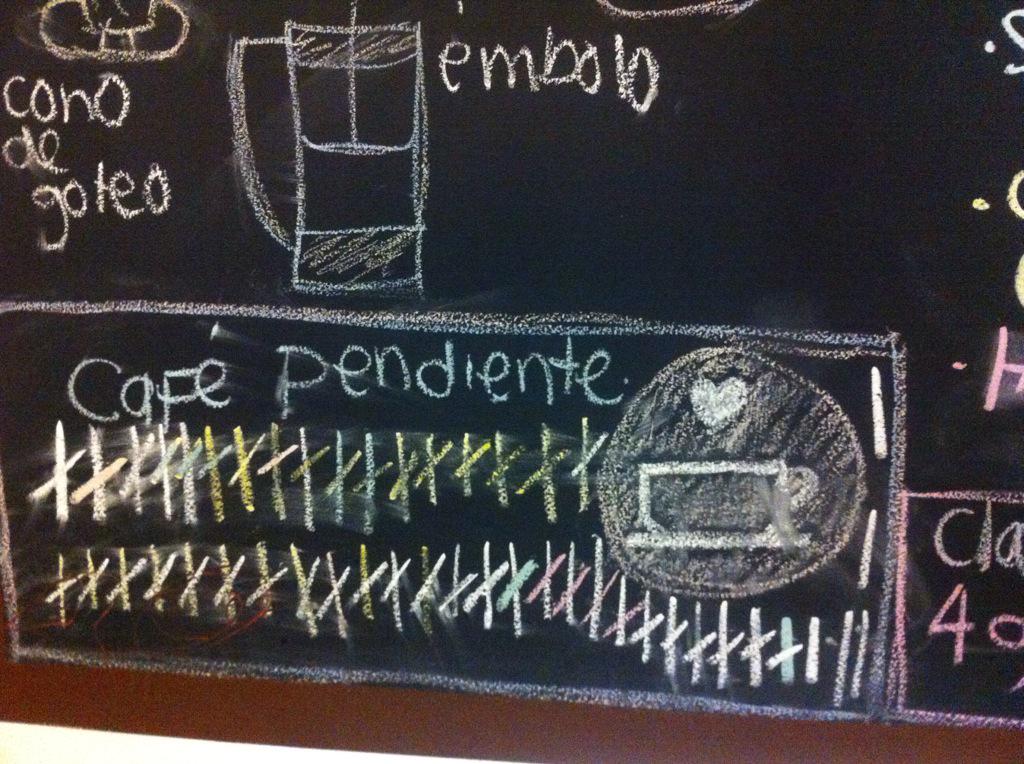 cono
de
goteo
émbolo
Cafe pendiente.
Cla
40